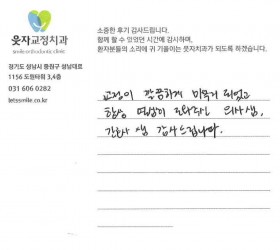 웃자교정치과
smile orthodontic clinic
경기도 성남시 중원구 성남대로
1156 도영타워 3,4층
031 606 0282
letssmile.co.kr
소중한 후기 감사드립니다.
함께 할 수 있었던 시간에 감사하며,
환자분들의 소리에 귀 기울이는 웃자치과가 되도록 하겠습니다.
교정이 깔끔하게 마무리 되었고
항상 열심히 도와주신 의사쌤,
간호사 쌤 감사드립니다.